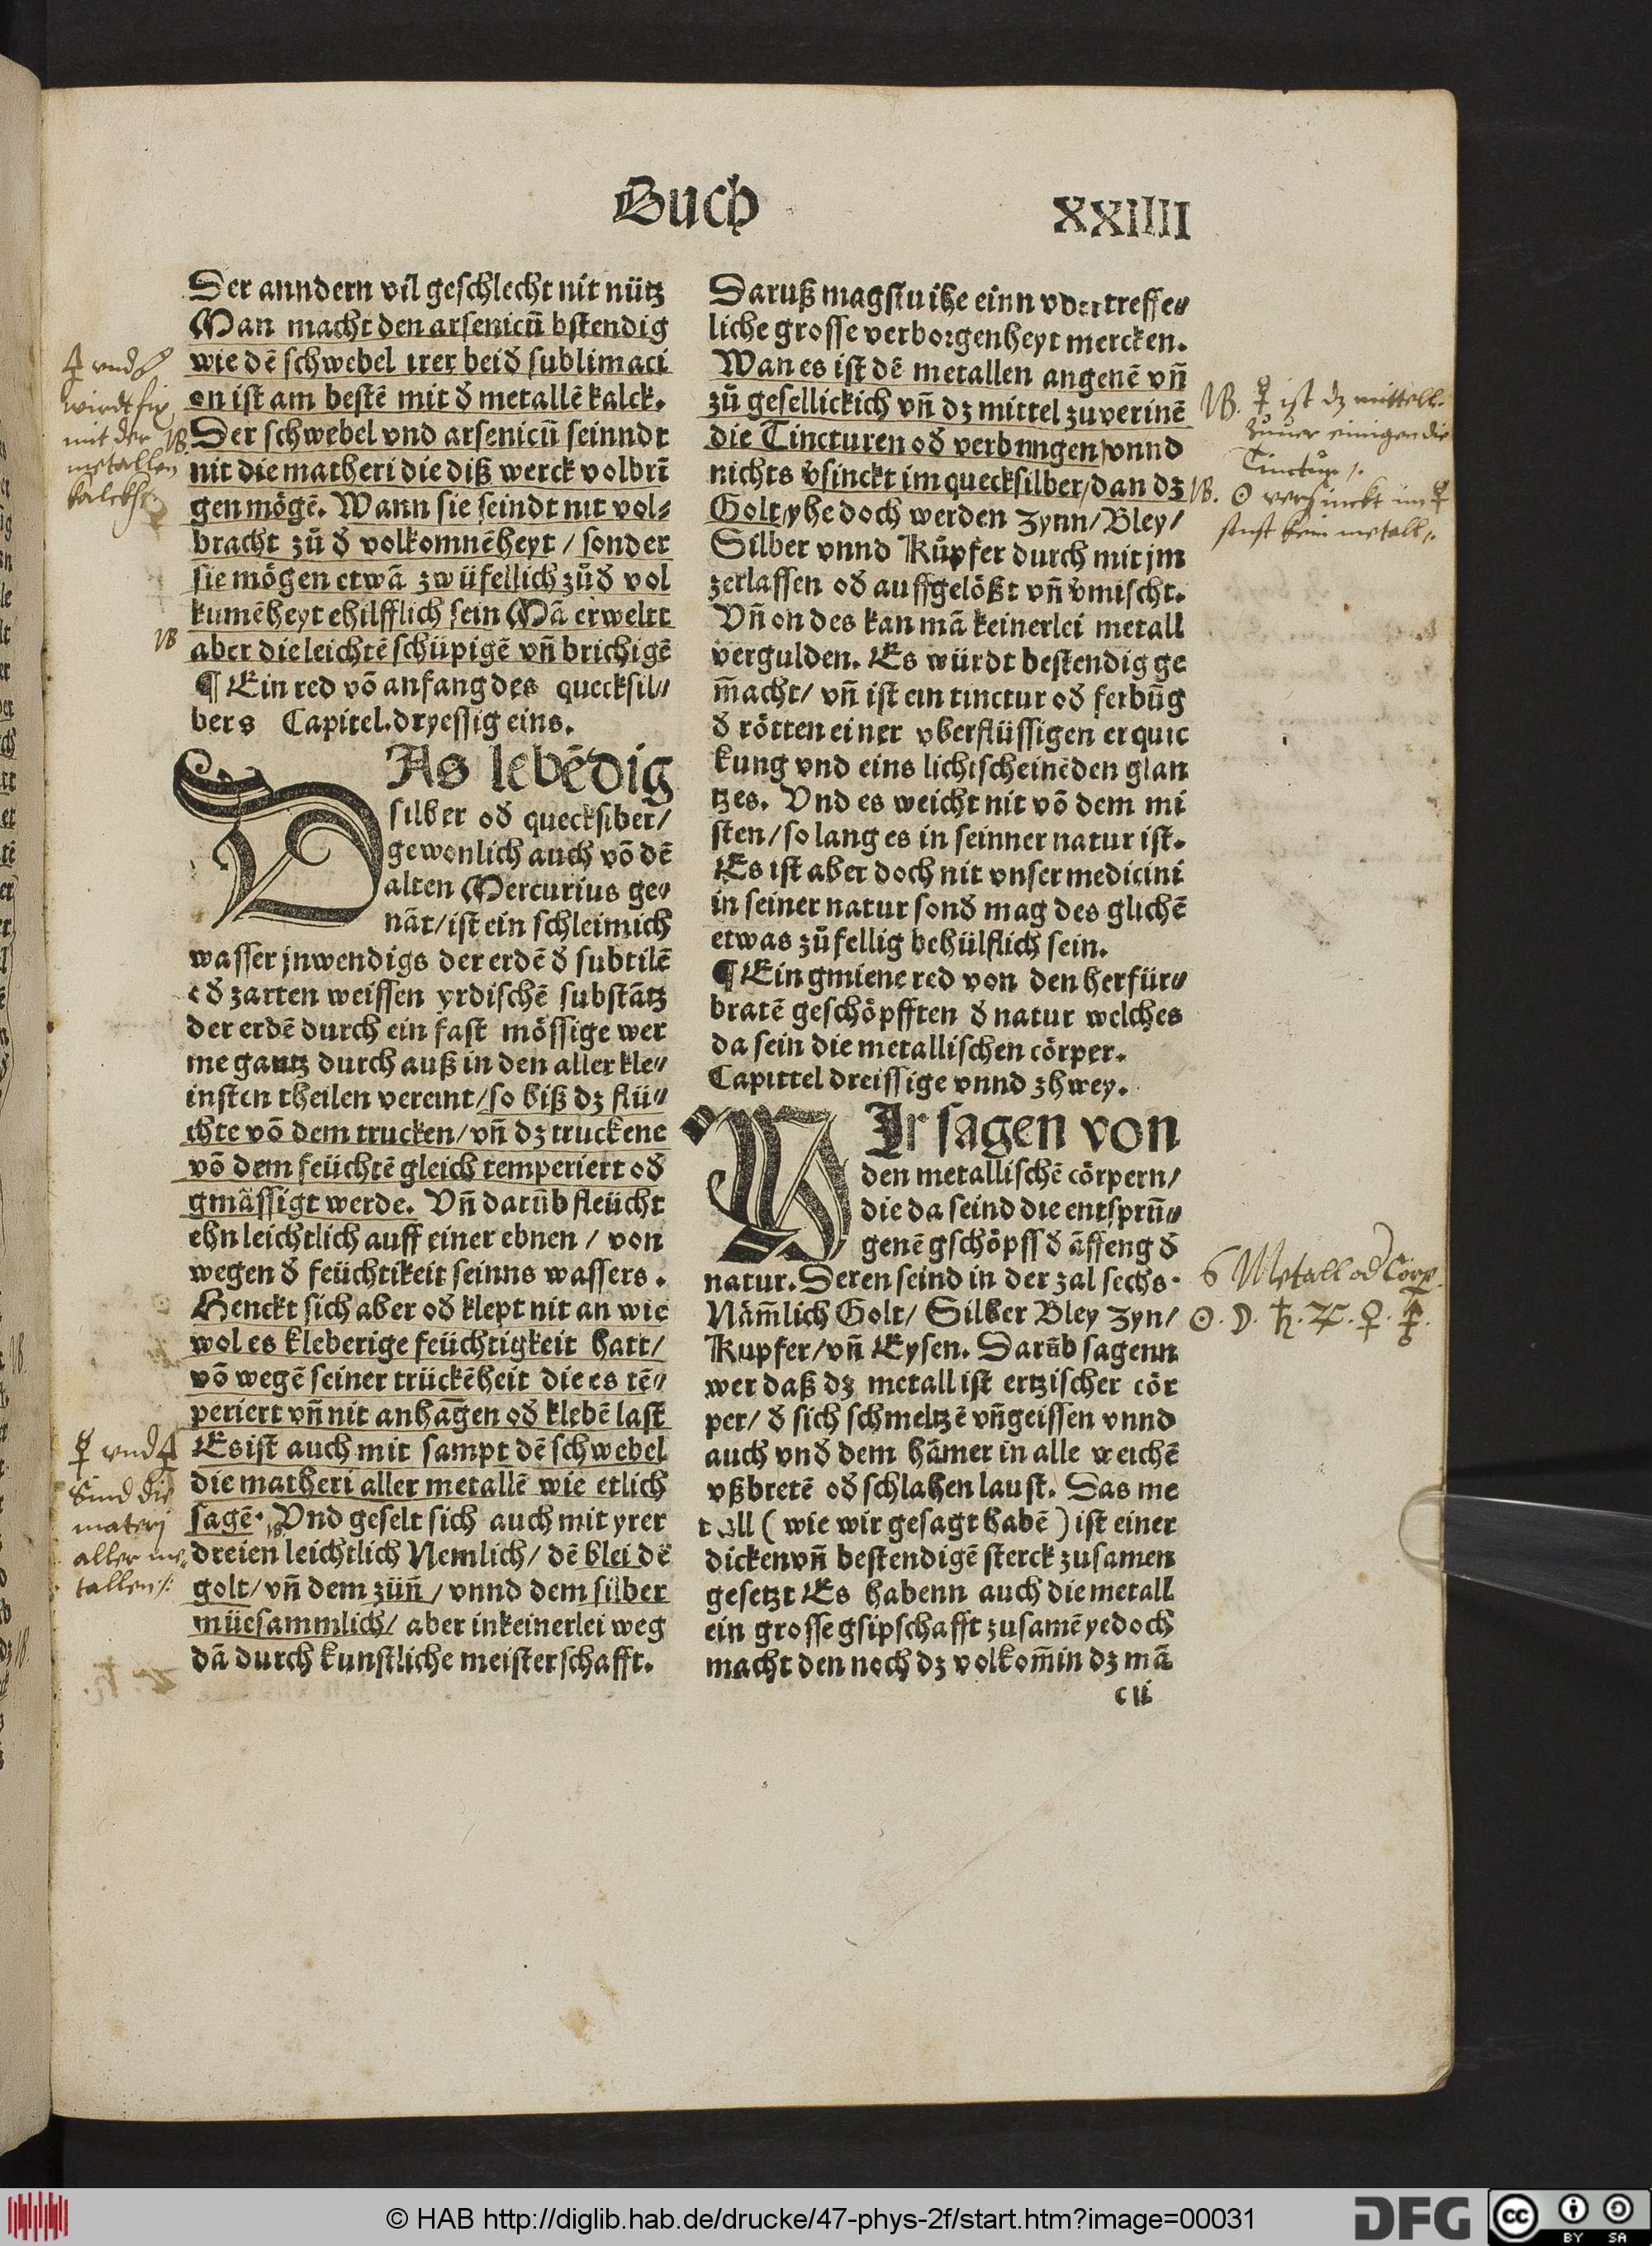 Buch
XXIIII
Der anndern vil geschlecht nit nütz
Man macht den arsenicū bstendig
wie dē schwebel irer beiđ sublimaci
on ist am bestē mit đ metallē kalck.
Der schwebel vnd arsenicū seinndt
nit die matheri die diß werck volbrī
gen mögē. Wann sie seindt nit vol⸗
bracht zů đ volkomnēheyt / sonder
sie mögen etwā zwüfellich zůđ vol
kumēheyt ehilfflich sein Mā erweltt
aber die leichtē schüpigē vn̄ brichigē
¶ Ein red vō anfang des quecksil⸗
bers Capitel. dryessig eins.
DAs lebēdig
silber ođ quecksiber/
gewonlich auch vō dē
alten Mercurius ge⸗
nāt/ist ein schleimich
wasser jnwendigs der erdē đ subtilē
ođ zarten weissen yrdischē substātz
der erdē durch ein fast mössige wer
me gantz durch auß in den aller kle⸗
insten theilen vereint/so biß dz flü⸗
chte vō dem trucken/vn̄ dz truckene
vō dem feüchtē gleich temperiert ođ
gmässigt werde. Vn̄ darūb fleücht
ehn leichtlich auff einer ebnen / von
wegen đ feüchtikeit seinns wassers.
Henckt sich aber ođ klept nit an wie
wol es kleberige feüchtigkeit hatt/
vō wegē seiner trückēheit die es tē⸗
periert vn̄ nit anhagen ođ klebē last
Es ist auch mit sampt dē schwebel
die matheri aller metallē wie etlich
sagē. Vnd geselt sich auch mit yrer
dreien leichtlich Nemlich/ dē blei dē
golt/vn̄ dem zün̄ /vnnd dem silber
müesammlich/ aber inkeinerlei weg
dā durch kunstliche meisterschafft.
Daruß magstu ihe einn vbertreffe⸗
liche grosse verborgenheyt mercken.
Wan es ist dē metallen angenē vn̄
zů gesellickich vn̄ dz mittel zu verinē
die Tincturen ođ verbungen/vnnd
nichts v̄sinckt im quecksilber/dan dz
Golt/yhe doch werden zynn/Bley/
Silber vnnd Kůpfer durch mit jm
zerlassen ođ auffgelößt vn̄ v̄mischt.
Vn̄ on des kan mā keinerlei metall
vergulden. Es würdt bestendig ge
m̄acht/ vn̄ ist ein tinctur ođ ferbūg
đ rötten einer vberflüssigen erquic
kung vnd eins lichtscheinēden glan
tzes. Vnd es weicht nit vō dem mi
sten/so lang es in seinner natur ist.
Es ist aber doch nit vnser medicini
in seiner natur sonđ mag des glichē
etwas zůfellig behülflich sein.
¶ Ein gmiene red von den herfür⸗
bratē geschöpfften đ natur welches
da sein die metallischen cörper.
Capittel dreissige vnnd zhwey.
WIr sagen von
den metallischē cörpern/
die da seind die entsprūn⸗
genē gschöpff đ āffeng đ
natur. Deren seind in der zal sechs.
Näm̄lich Golt/ Silber Bley Zyn/
Kupfer/vn̄ Eysen. Darūb sagenn
wer daß dz metall ist ertzischer cör
per/ đ sich schmeltzē vn̄geissen vnnd
auch vnđ dem hāmer in alle weichē
vßbretē ođ schlahen laust. Das me
tall ( wie wir gesagt habē ) ist einer
dicken vn̄ bestendigē sterck zusamen
gesetzt Es habenn auch die metall
ein grosse gsipschafft zusamē yedoch
macht den noch dz volkom̄in dz mā
c ii
🜍 vnd
wirdt fix
mit der
metallen
kalckh
NB.
NB
☿ vnd 🜍
sind die
materj
aller me
tallen
NB. ☿ ist dz mittell
zuuer einigen die
Tinctur
NB. ☉ versinckt im ☿
sonst kein metall
6 Metall od Corp
☉. ☽. ♄. ♃. ♀.
© HAB http://diglib.hab.de/drucke/47-phys-2f/start.htm?image=00031
DFG
cc
BY SA